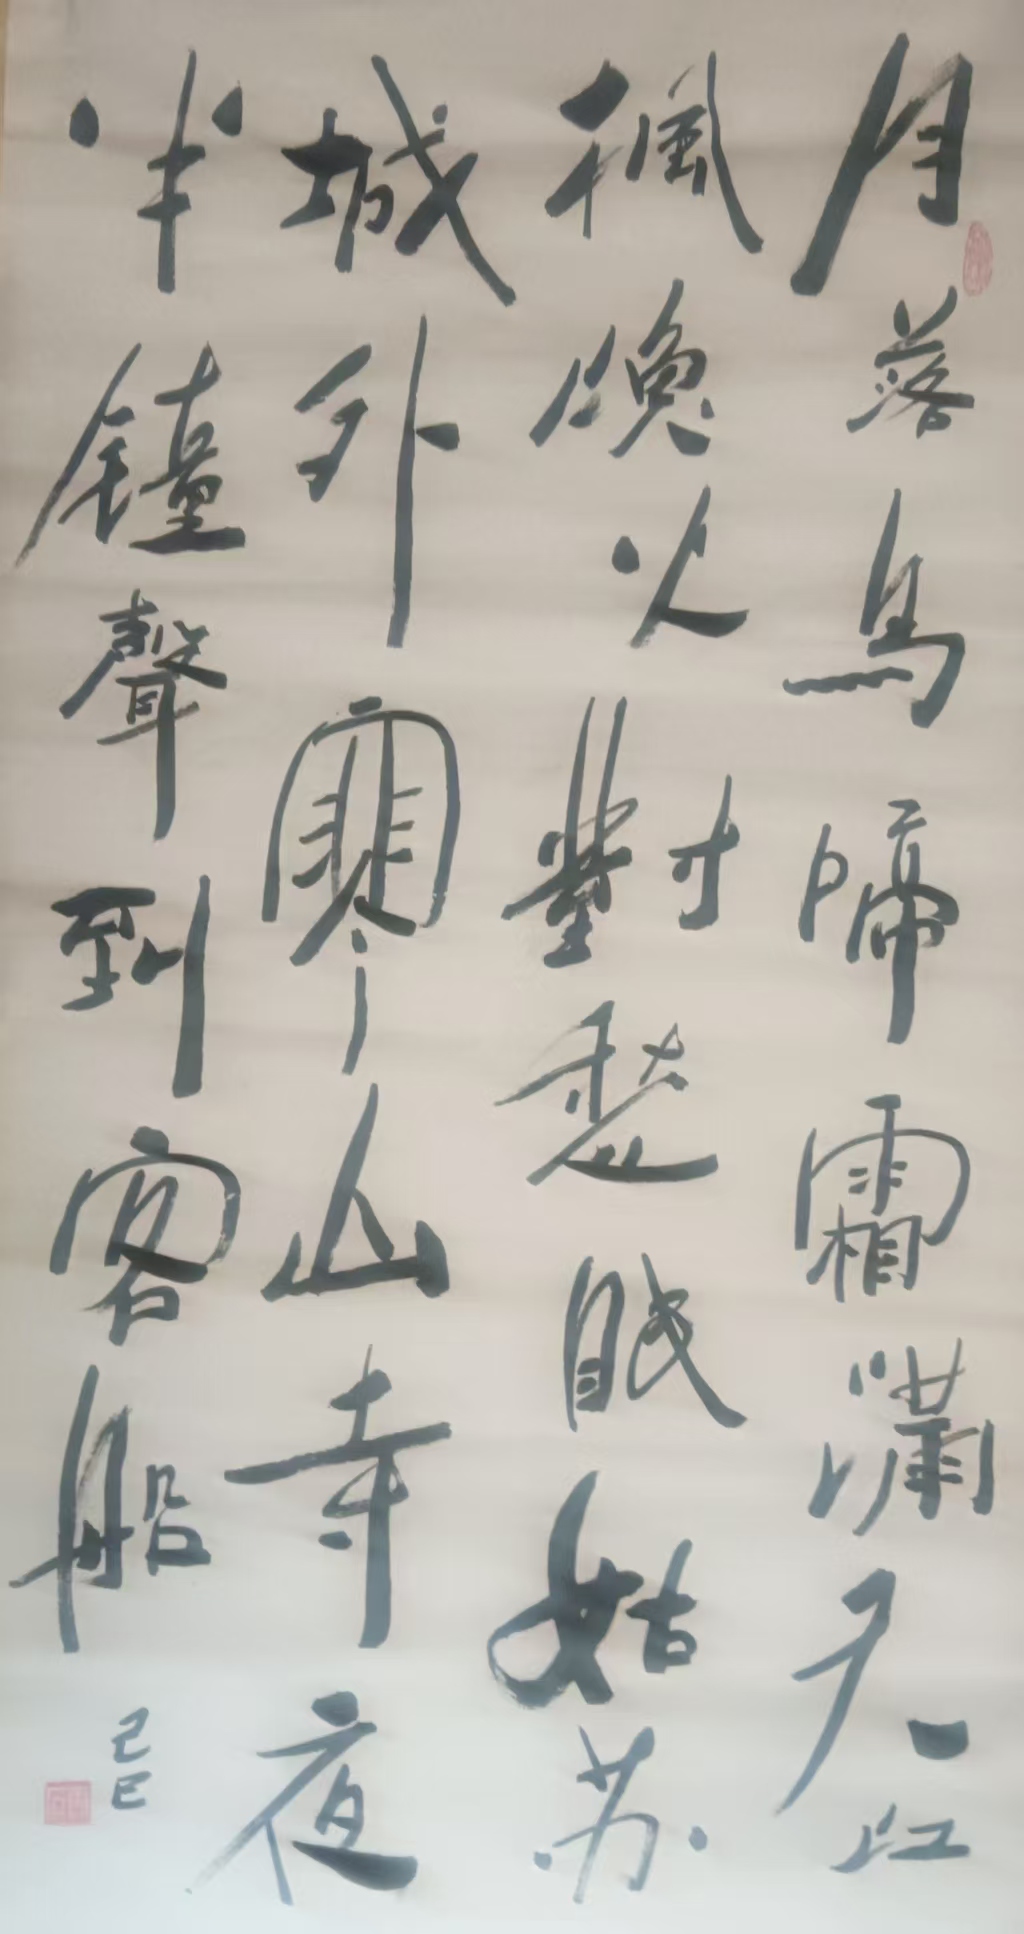 月落烏啼霜滿天江
楓漁火對愁眠姑苏
城外寒山寺夜
半鐘聲到客船
己巳